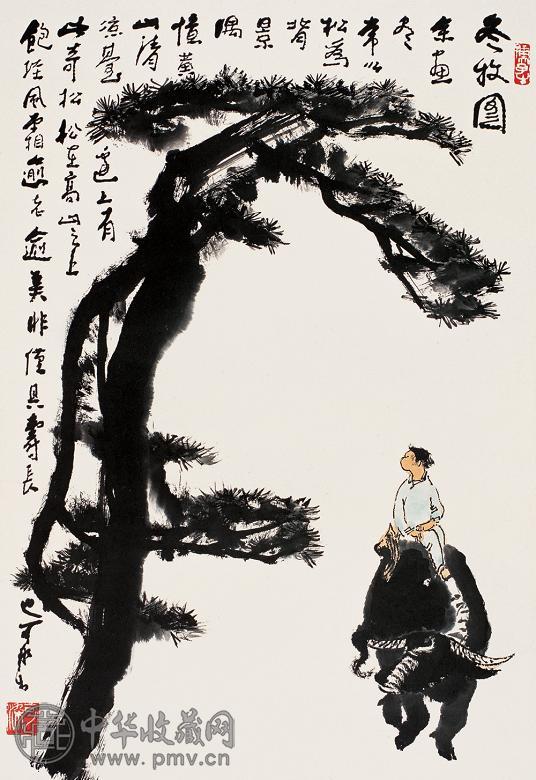 冬牧圖
余画
冬
常以
松為
背
景
偶
憶黄
山清
涼臺
邊上有
此奇松松在高山之上
飽经風霜逾老逾美非僅具壽長
也可染
中华收藏网
www.pmv.cn